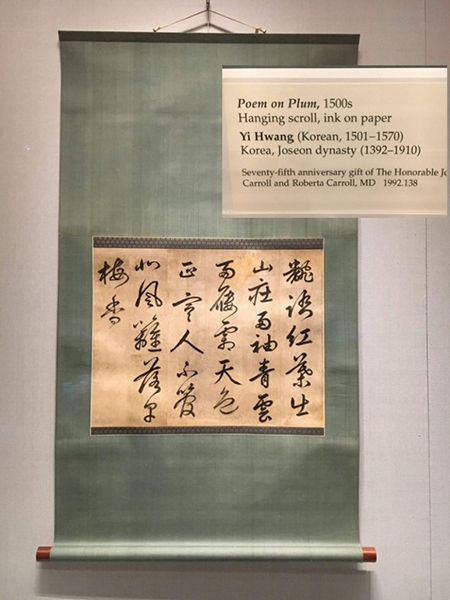 Poem on Plum, 1500s
Hanging scroll, ink on paper
Yi Hwang (Korean, 1501–1570)
Korea, Joseon dynasty (1392–1910)
Seventy-fifth anniversary gift of The Honorable
Carroll and Roberta Carroll, MD 1992.138
紅葉出
山庄兩袖青雲
兩 霜天色
正寒人不管
北風籬落早
梅香